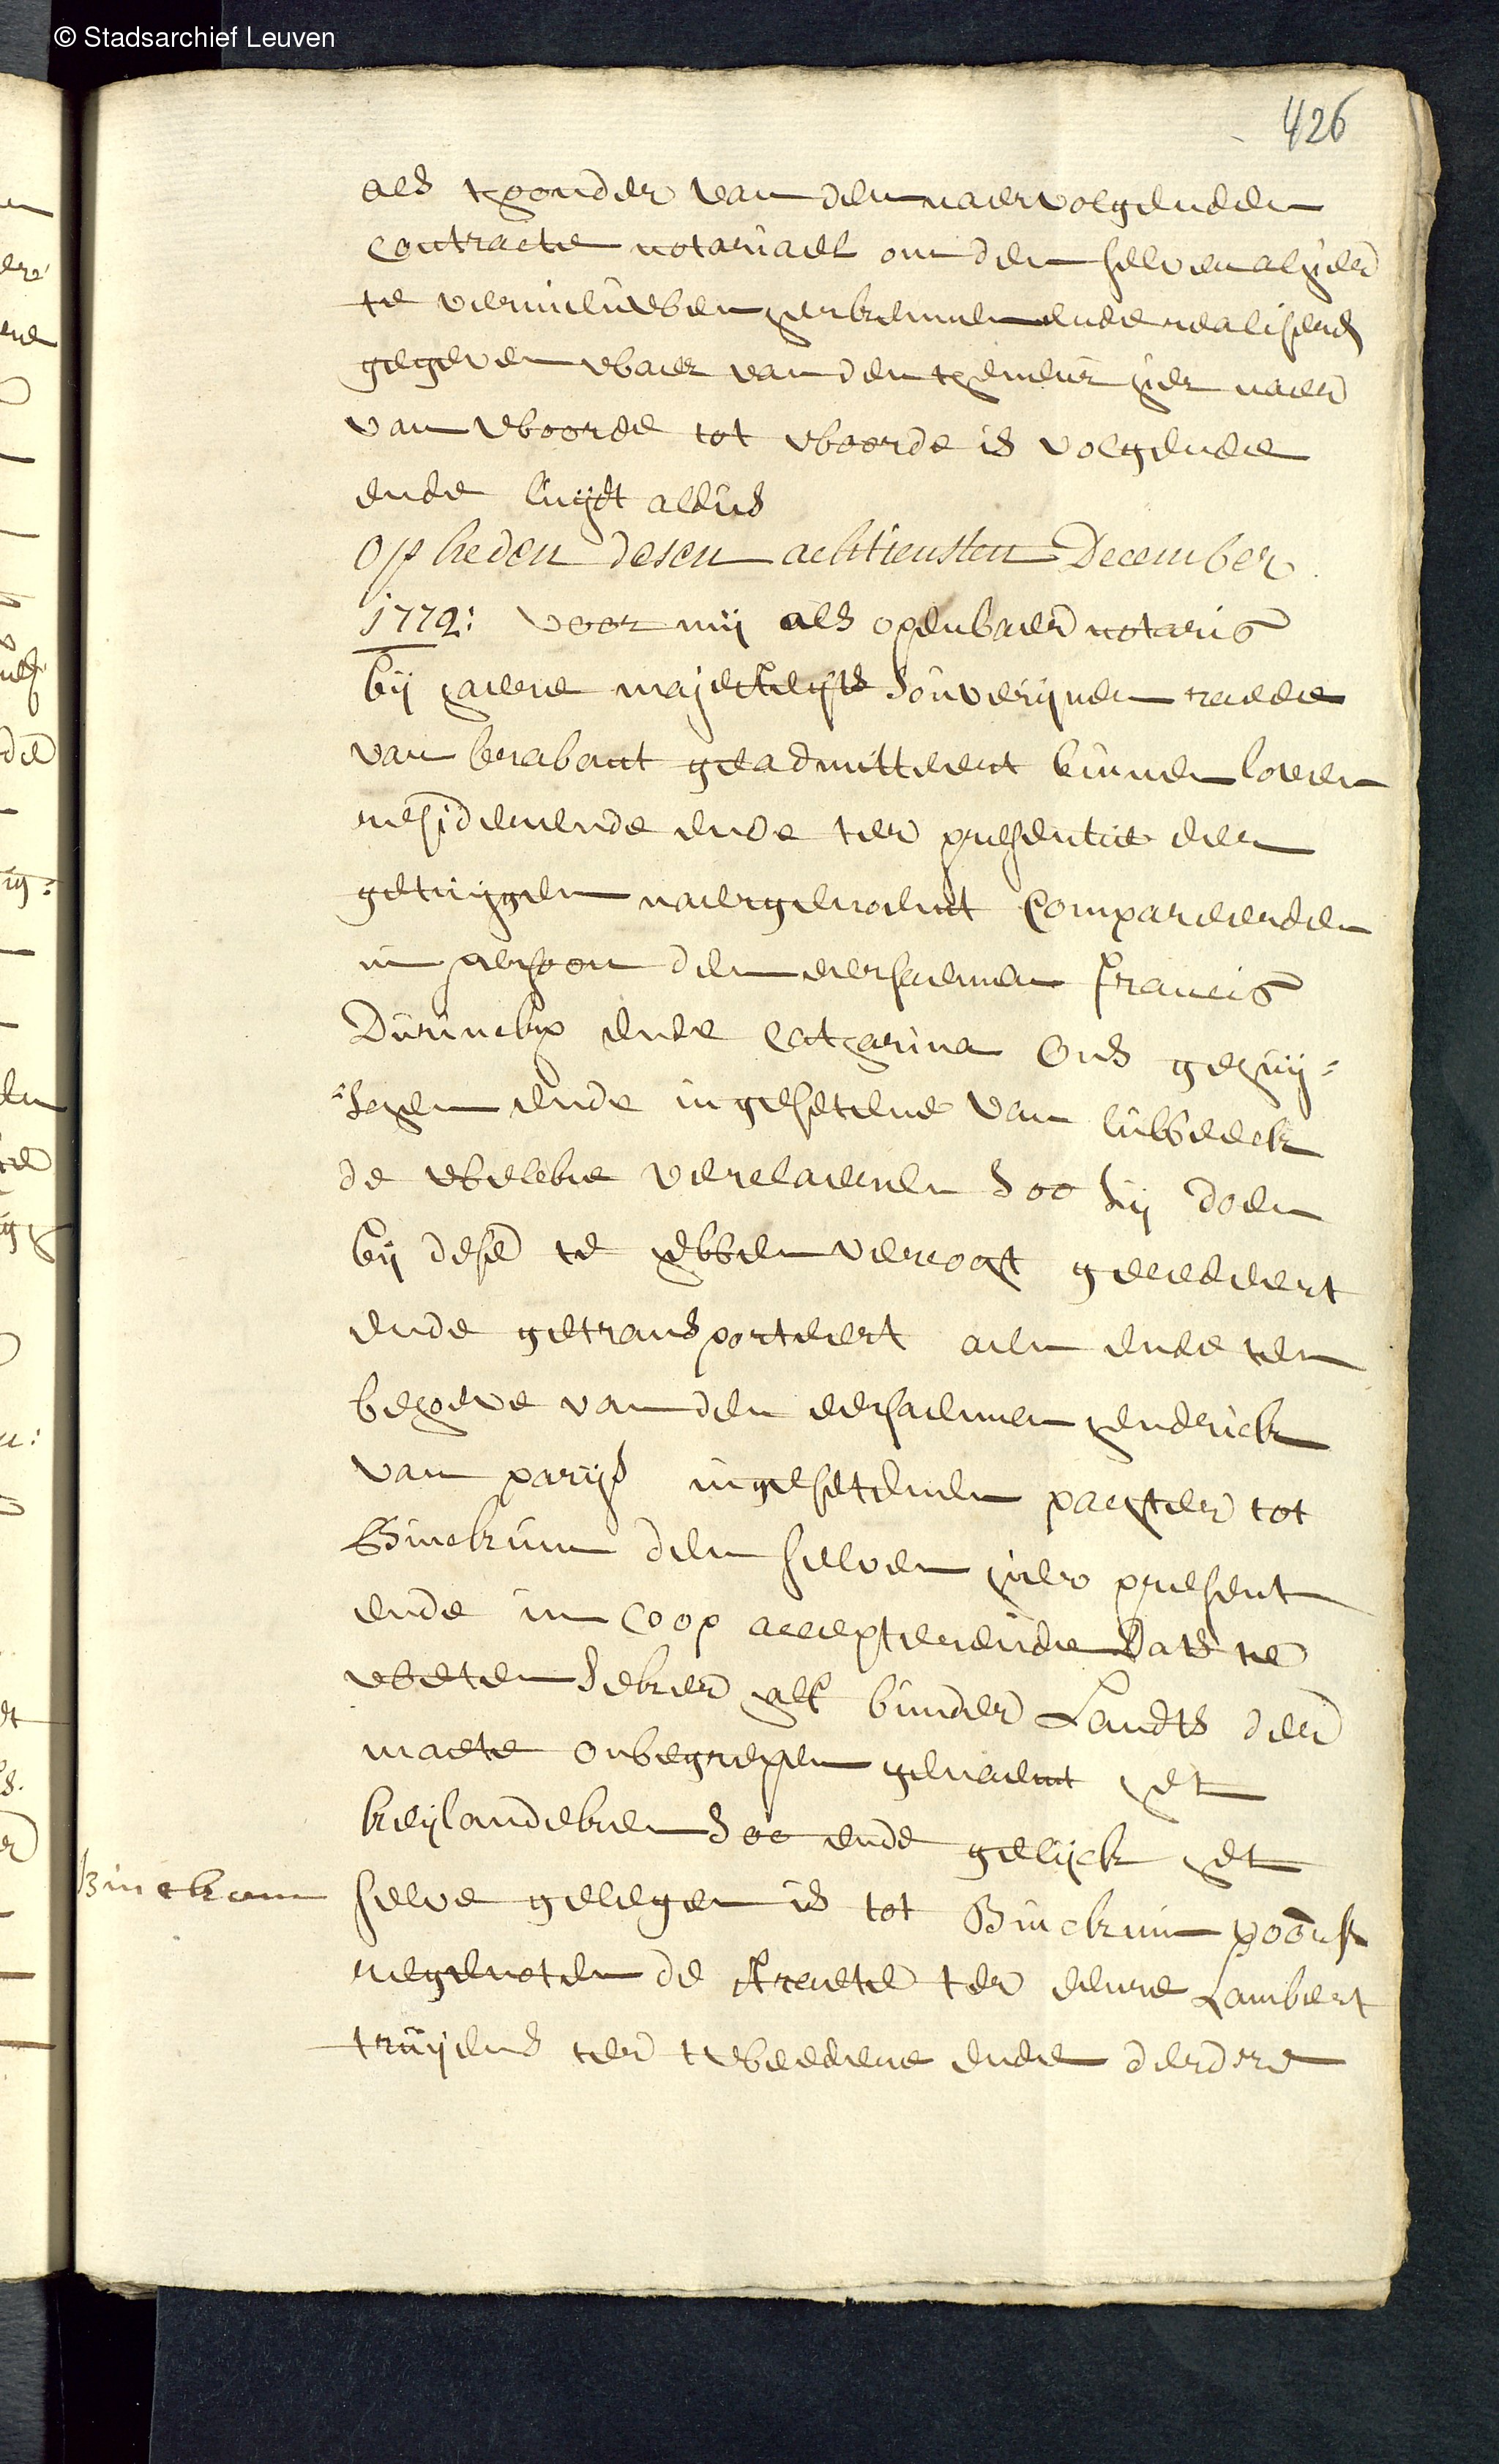 © Stadsarchief Leuven
426
als thoonder van den naervolgenden
contracte notariael om den selven alhier
te vernieuwen herkennen ende realiseren
gegeven waer van den theneur hier naer
van woorde tot woorde is volgende
ende luijdt aldus
Op heden desen achtiensten December
1772: voor mij als openbaer notaris
bij haere majesteyts souverijnen raede
van brabant geadmitteert binnen loven
residerende ende ter presentie der
getuijgen naergenoemt Compareerden
in persoon den eersaemen francis
Durinckx ende Catharina Ons gehuij=
=schen ende ingesetene van lubbeeck
de welcke verclaeren soo sij doen
bij dese te hebben vercoght gecedeert
ende getransporteert aen ende ten
behoeve van den eersaemen hendrick
van parijs ingesetenen pachter tot
Binckum den selven hier present
ende in coop accepterende dats te
weten seker half bunder Landts der
maete onbegrepen genaemt het
keijlandeken soo ende gelijck het
Binckum
selve gelegen is tot Binckum voors
regenoten de straete ter eenre Lambert
truijens ter tweedere ende derdere